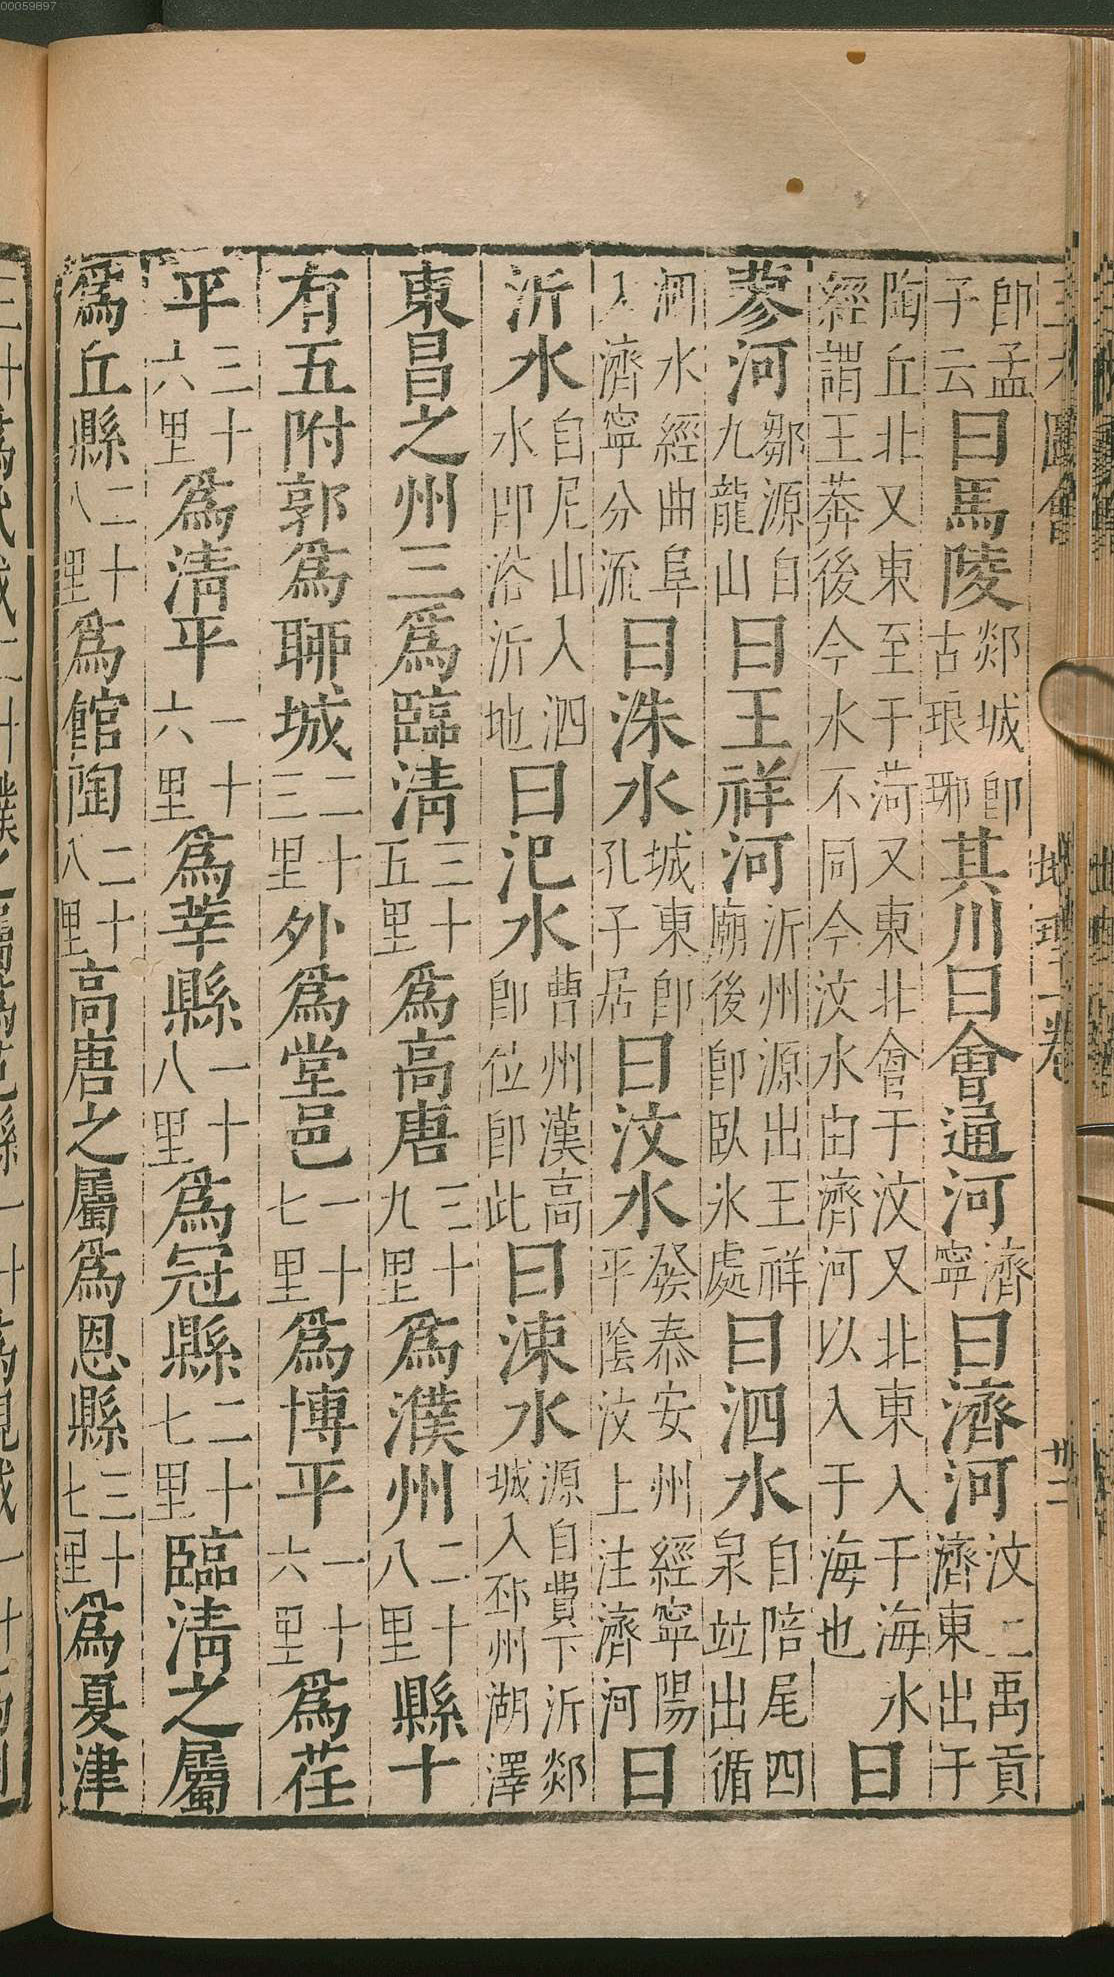 00059897
三才圖會 地理二卷 卅二
即孟子云曰馬陵郯城即古琅琊其川曰會通河濟寧曰濟河汶上禹貢濟東出于
陶丘北又東至于菏又東北會于汶又北東入于海水經謂王莽後今水不同今汶水由濟河以入于海也曰
蔘河鄒源自九龍山曰王祥河沂州源出王祥廟後即臥氷處曰泗水自陪尾四泉竝出循
泗水經曲阜入濟寧分流曰洙水城東即孔子居曰汶水發泰安州經寧陽平隂汶上注濟河曰
沂水自尼山入泗水即浴沂地曰汜水曹州漢高即位即此曰涑水源自費下沂郯城入邳州湖澤
東昌之州三爲臨清三十五里爲高唐三十九里爲濮州二十八里縣十
有五附郭爲聊城二十三里外爲堂邑一十七里爲博平一十六里爲茌
平三十六里爲清平一十六里爲莘縣一十八里爲冠縣二十七里臨清之屬
爲丘縣二十八里爲館陶二十八里高唐之屬爲恩縣三十七里爲夏津